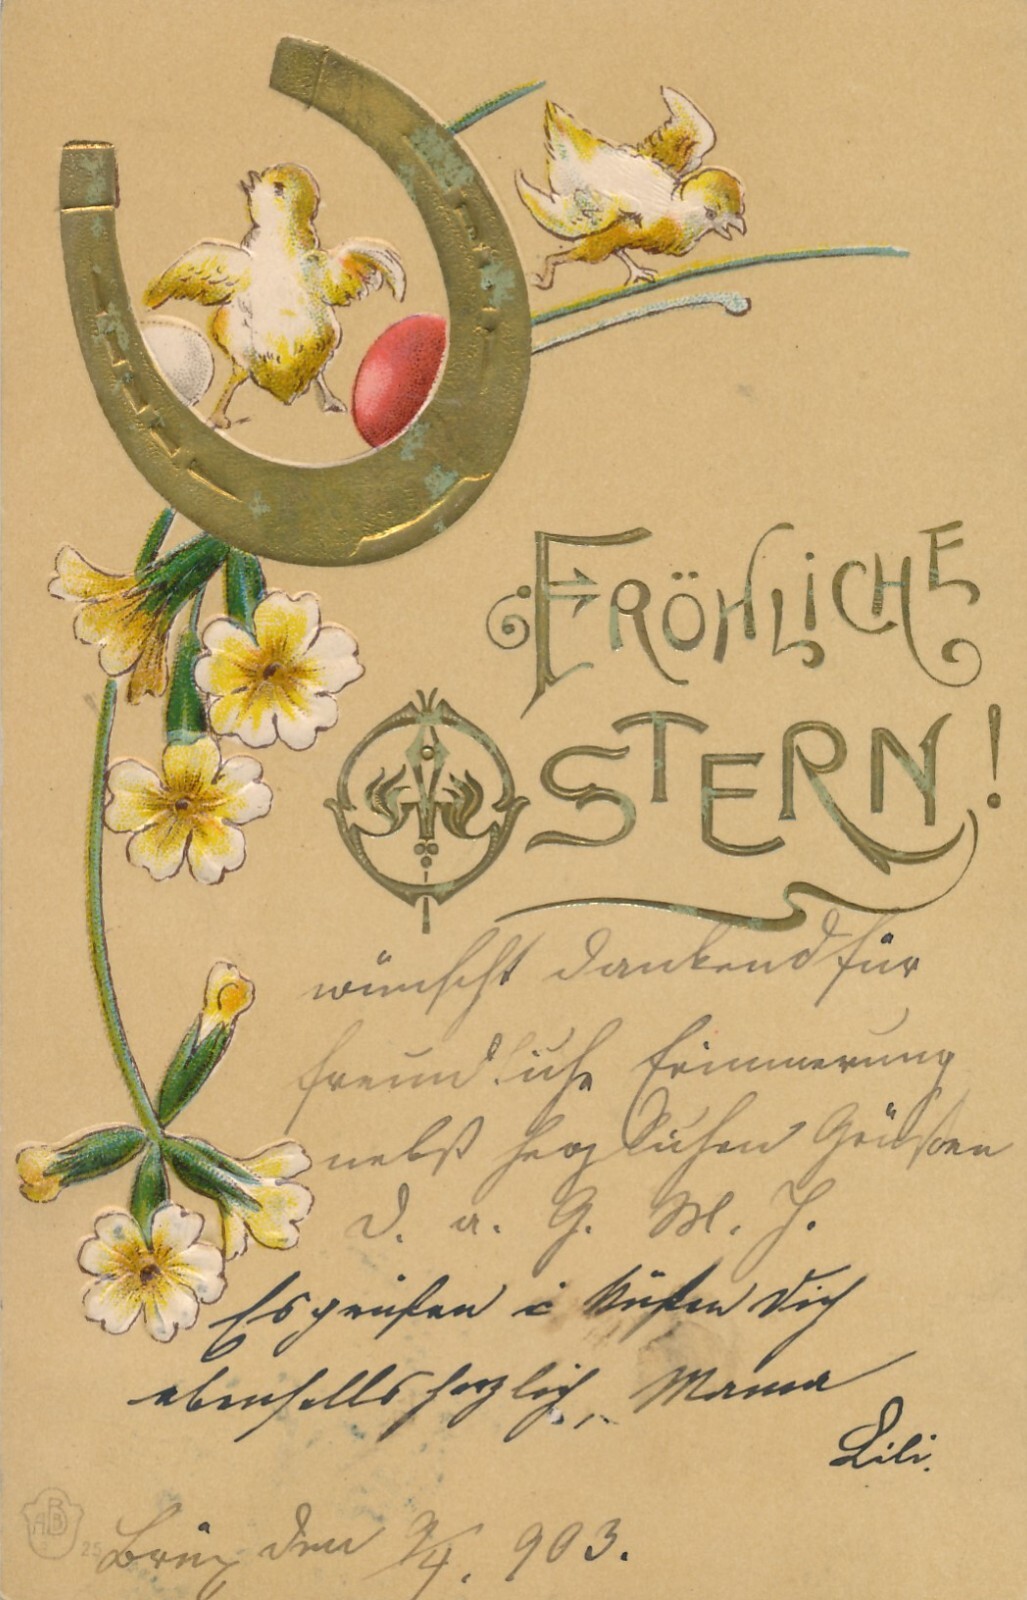 FRÖHLICHE
OSTERN!
wünscht dankend für
freundliche Erinnerung
nebst herzlichen Grüßen
D. a. G. M. J.
Es grüßen i küssen Dich
ebenfalls herzlich, Mama
Lili.
ABD
25
Brüx den 9/4. 903.